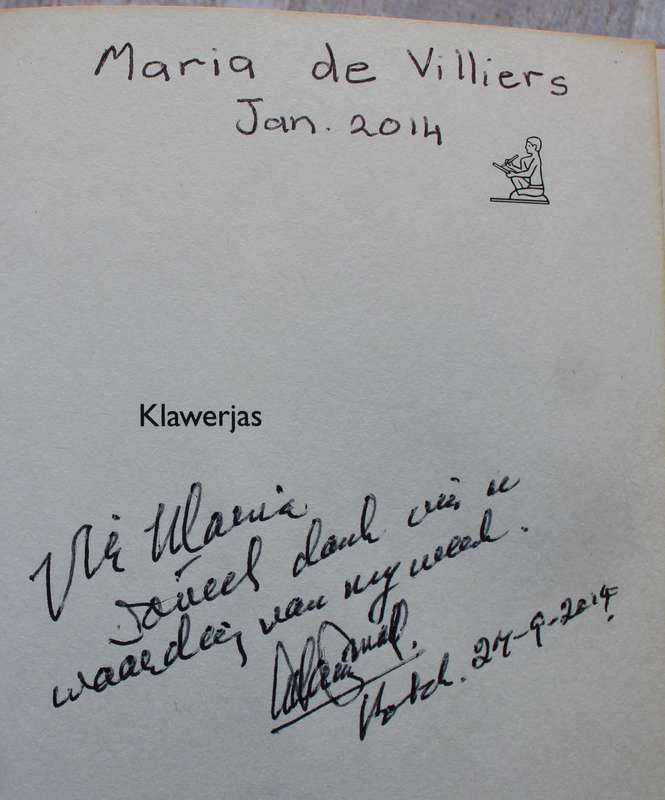 Maria de Villiers
Jan. 2014
Klawerjas
Vir Maria
Soveel dank vir u
waardering van my werk.
Potch. 27-9-2014